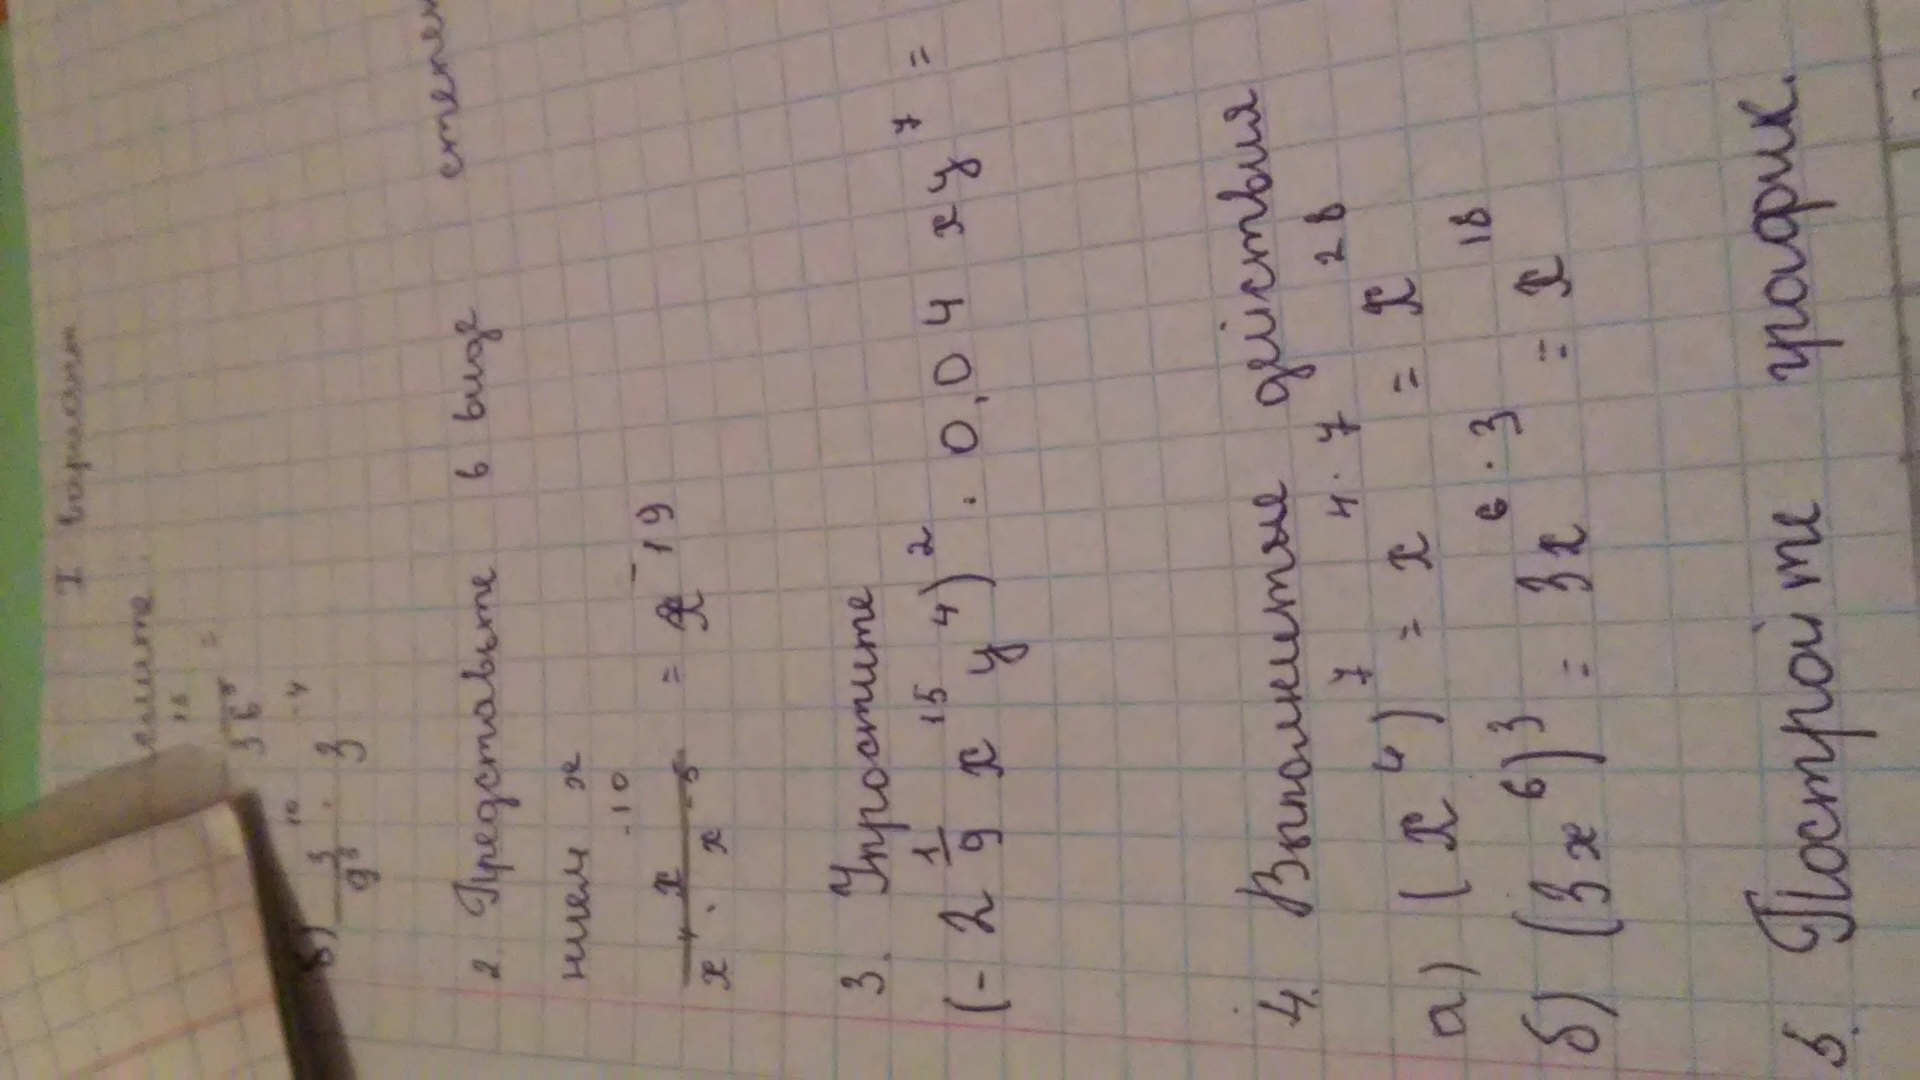 I вариант
15
3 6⁵ =
б) 3¹⁰ · 3⁻⁴
9⁵
2. Представьте в виде степе
нием x
x⁻¹⁰
x⁴ · x⁻⁵ = x⁻¹⁹
3. Упростите
(- 2 1/9 x¹⁵ y⁴)² · 0,04 xy⁷ =
4. Выполнитяе действия
а) (x⁴)⁷ = x⁴·⁷ = x²⁸
б) (3x⁶)³ = 3x⁶·³ = x¹⁸
5. Постройте график.